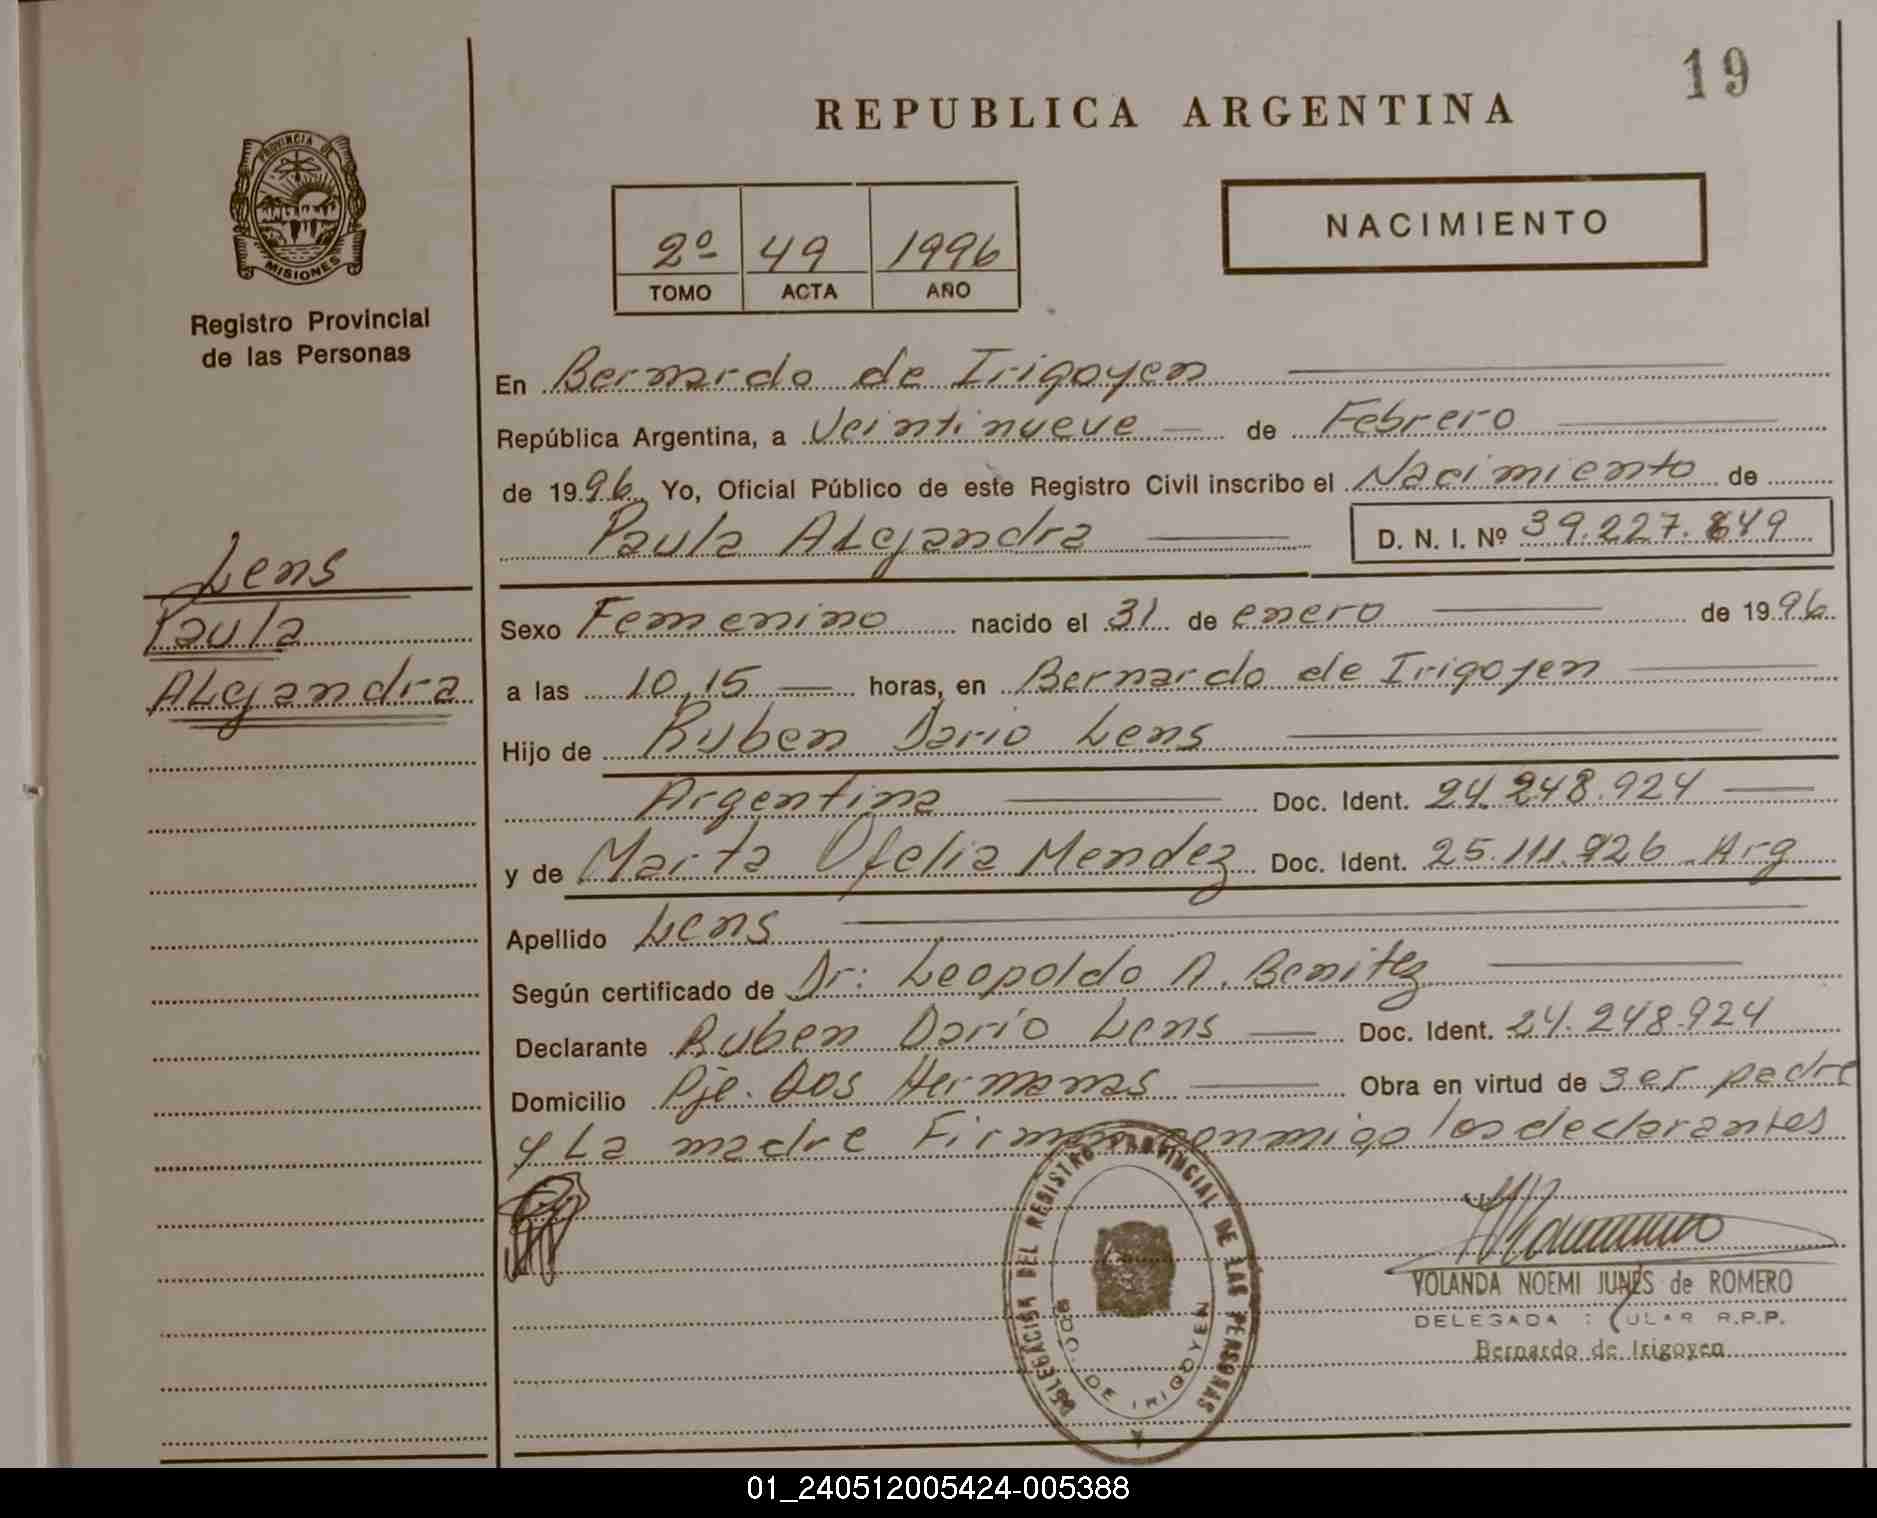 19
REPUBLICA ARGENTINA
PROVINCIA DE
MISIONES
Registro Provincial
de las Personas
NACIMIENTO
2º 49 1996
TOMO ACTA AÑO
En Bernardo de Irigoyen
República Argentina, a Veintinueve de Febrero
de 1996 Yo, Oficial Público de este Registro Civil inscribo el Nacimiento de
Paula ALejandra D. N. I. Nº 39.227.649
Lens
Paula
ALejandra
Sexo Femenino nacido el 31 de enero de 1996
a las 10,15 horas, en Bernardo de Irigoyen
Hijo de Ruben Dario Lens
Argentina Doc. Ident. 24.248.924
y de Marta Ofelia Mendez Doc. Ident. 25.111.926 Arg
Apellido Lens
Según certificado de Dr: Leopoldo A. Benitez
Declarante Ruben Darío Lens Doc. Ident. 24.248.924
Domicilio Pje. Dos Hermanas Obra en virtud de ser padre
y La madre Firman conmigo los declarantes
DELEGACIÓN DEL REGISTRO PROVINCIAL DE LAS PERSONAS
BDO. DE IRIGOYEN
YOLANDA NOEMI JUNES de ROMERO
DELEGADA R.P.P.
Bernardo de Irigoyen
01_240512005424-005388